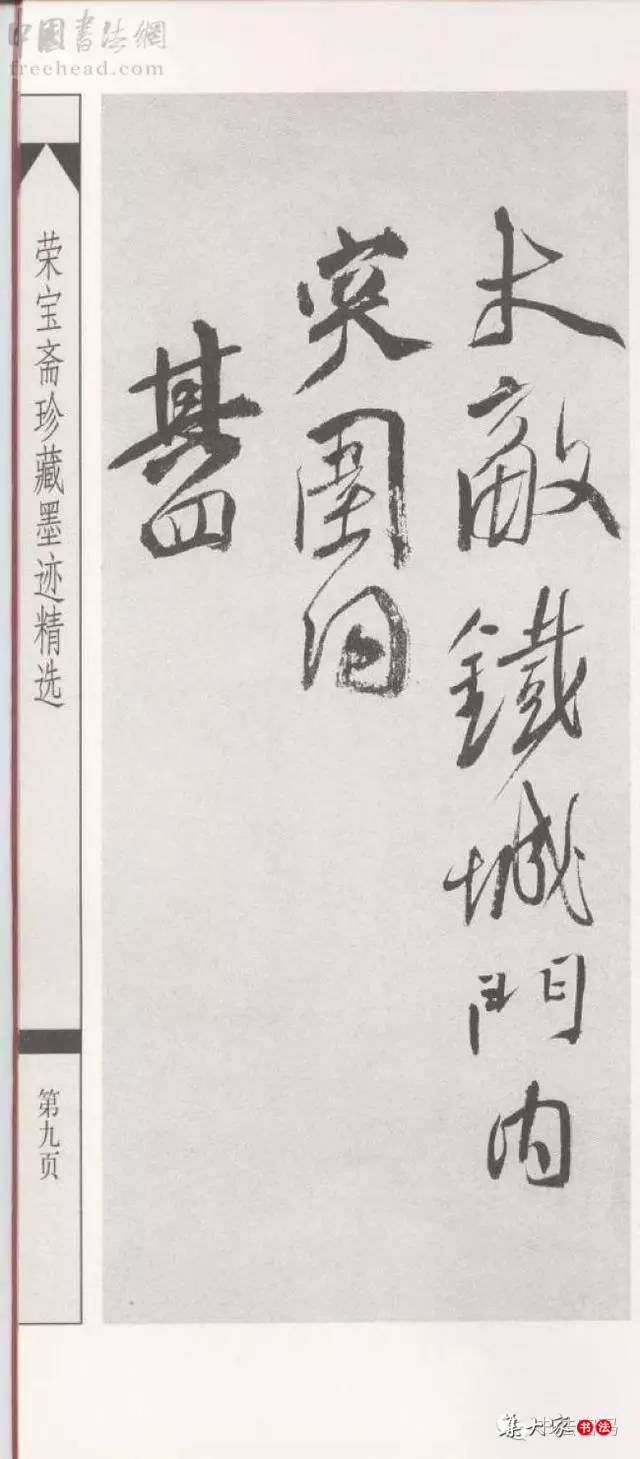 中國书法網
freehead.com
未敵鐵城門内
突圍回
其四
荣宝斋珍藏墨迹精选
第九页
集大家书法